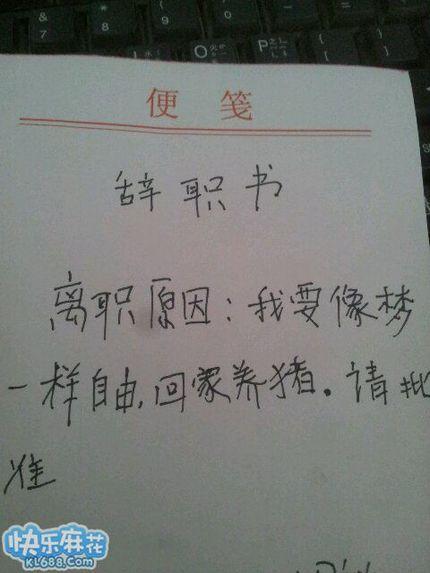 便笺
辞职书
离职原因：我要像梦
一样自由，回家养猪。请批
准
快乐麻花
KL688.Com